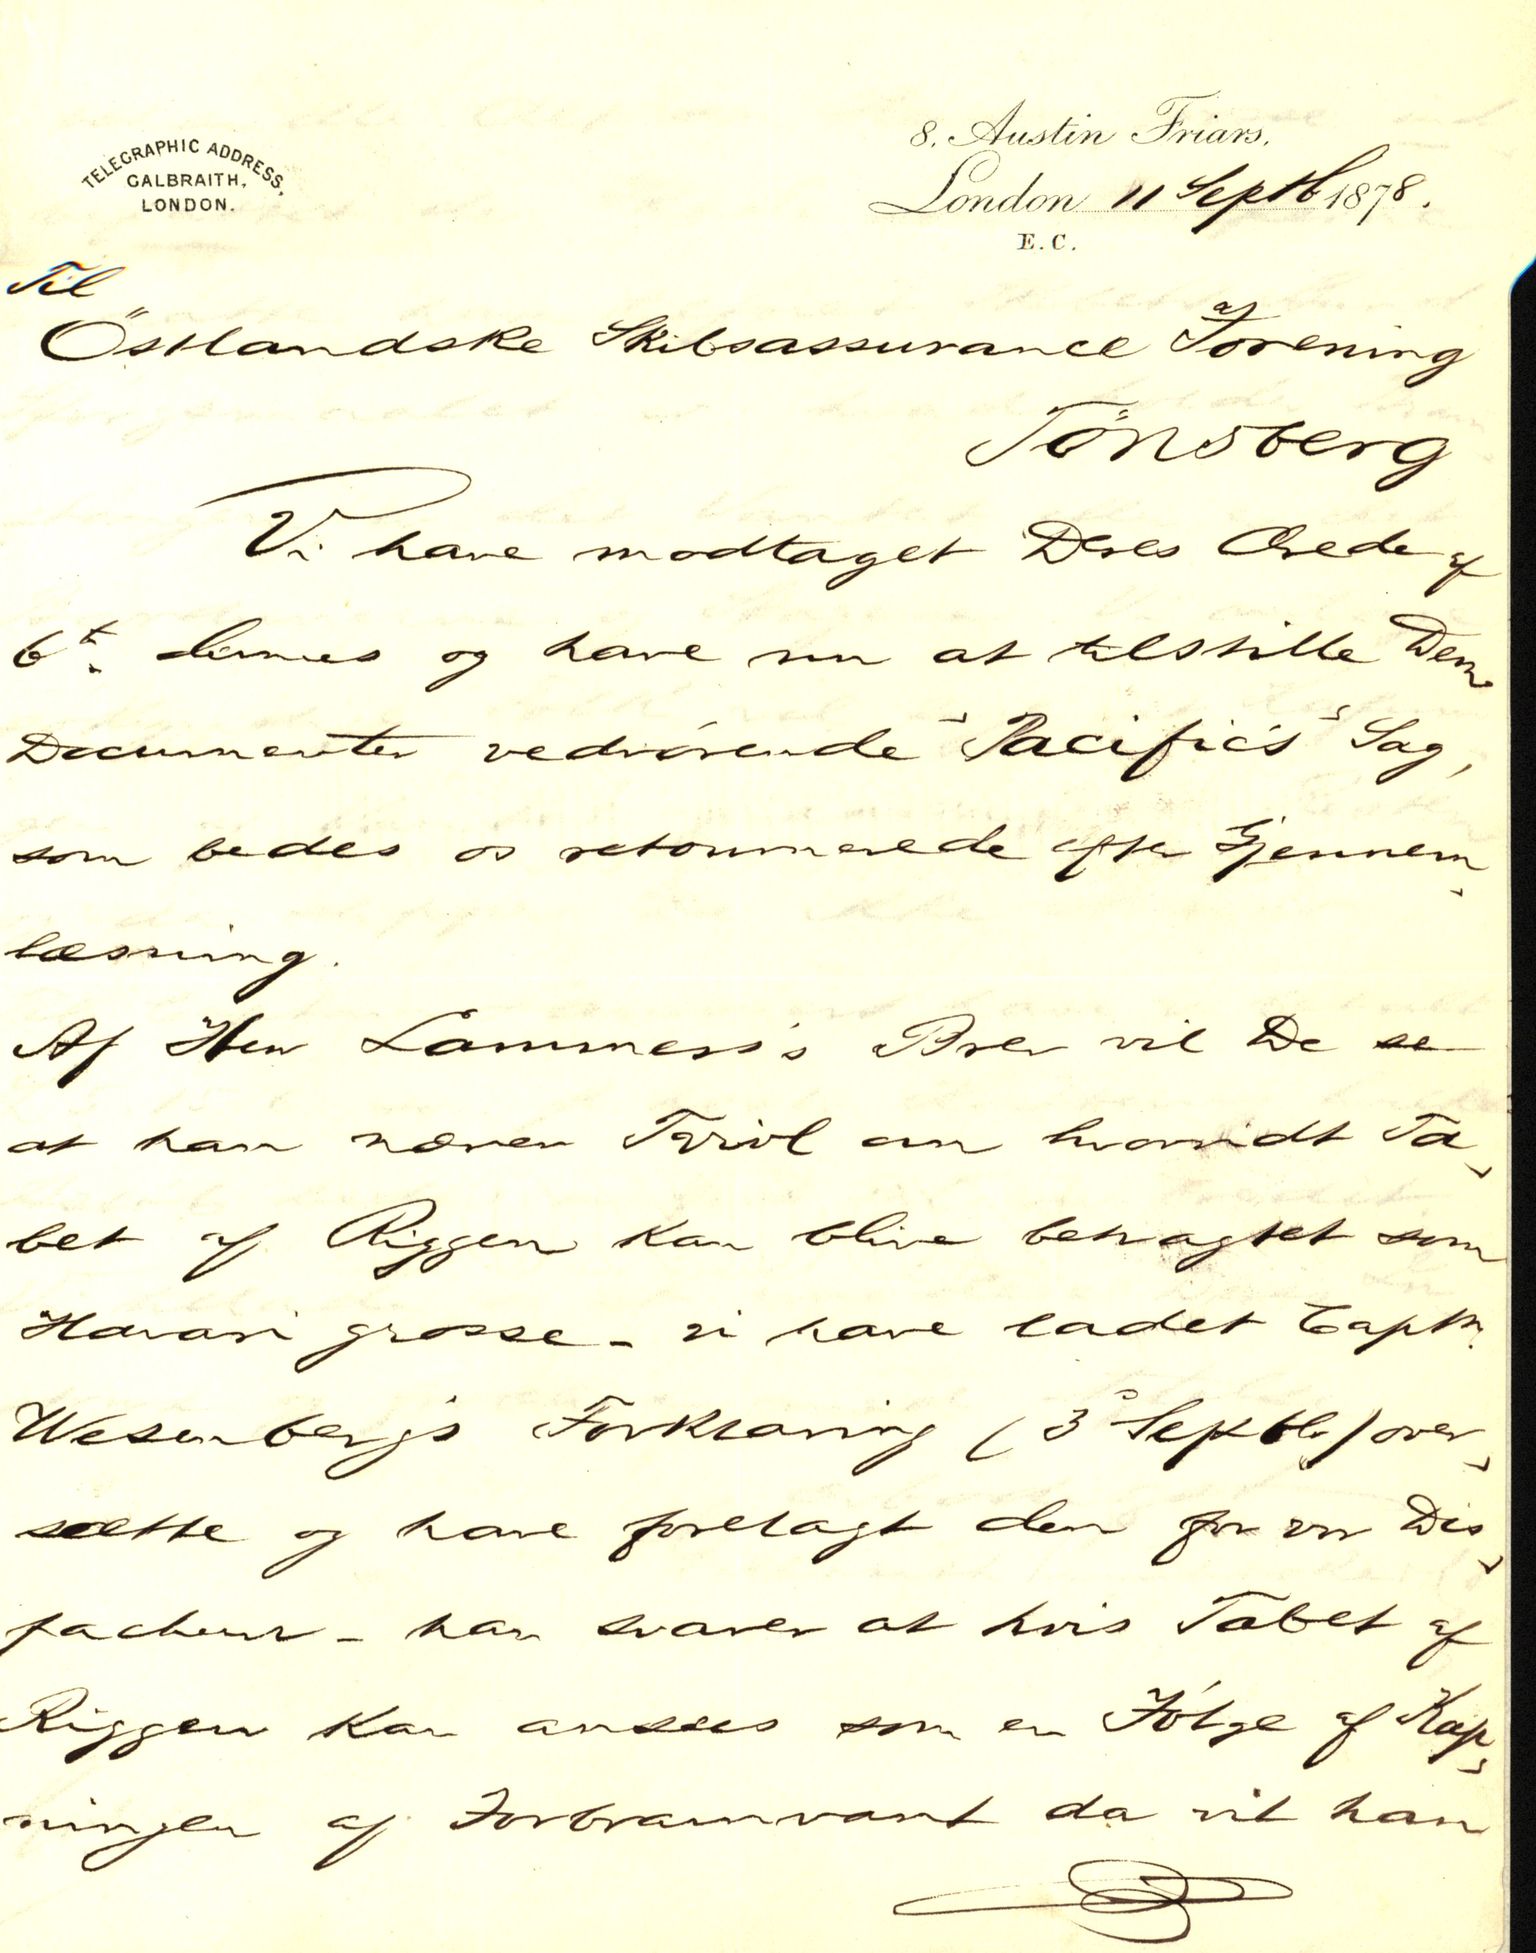 8, Austin Friars,
TELEGRAPHIC ADDRESS,
GALBRAITH,
LONDON.
London 11 Septb 1878.
E.C.
Til
Östlandske Skibsassurance Forening
Tönsberg
Vi have modtaget Deres Ærede af
6t. dennes og have nu at tilstille Dem
Documenter vedrörende "Pacific's" Sag,
som bedes os retournerede efter Gjennem-
læsning.
Af Herr Lammers's Brev vil De se
at han nærer Tvivl om hvorvidt Ta-
bet af Riggen kan blive betragtet som
Havari grosse - vi have ladet Captn.
Wesenberg's Forklaring (3 Septb.) over-
sætte og have forelagt den for vor Dis-
pacheur - han svarer at hvis Tabet af
Riggen kan ansees som en Fölge af Kap-
ningen af Forbramvant da vil han